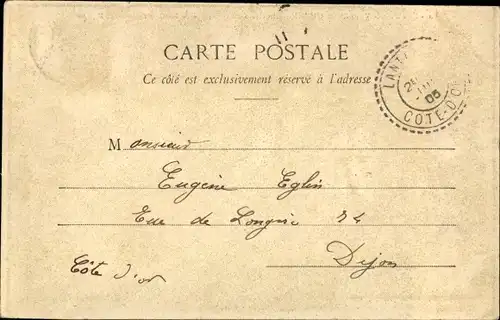 CARTE POSTALE
Ce côté est exclusivement réservé à l'adresse
LANT
05
COTE-D'OR
Monsieur
Eugène Eglin
Rue de Longvic 34
Dijon
Côte d'or